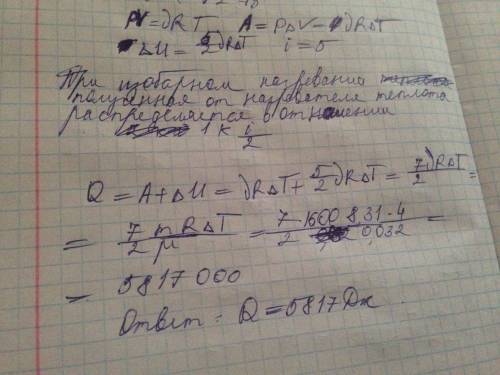 PV = νRT A = PΔV = νRΔT
ΔU = 5/2 νRΔT i = 5
При изобарном нагревании
полученная от нагревателя теплота
распределяется в отношении
1 к i/2
Q = A + ΔU = νRΔT + 5/2 νRΔT = 7/2 νRΔT =
= 7 m R ΔT / 2 μ = 7 · 1600 · 8,31 · 4 / 2 · 0,032 =
= 5817 000
Ответ: Q = 5817 Дж.